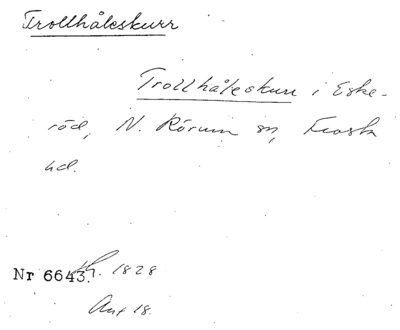 Trollhåleskurr
Trollhåleskurr i Eske-
röd, N. Rörum sn, Frosta
hd.
Nr 6643. 1828
18.